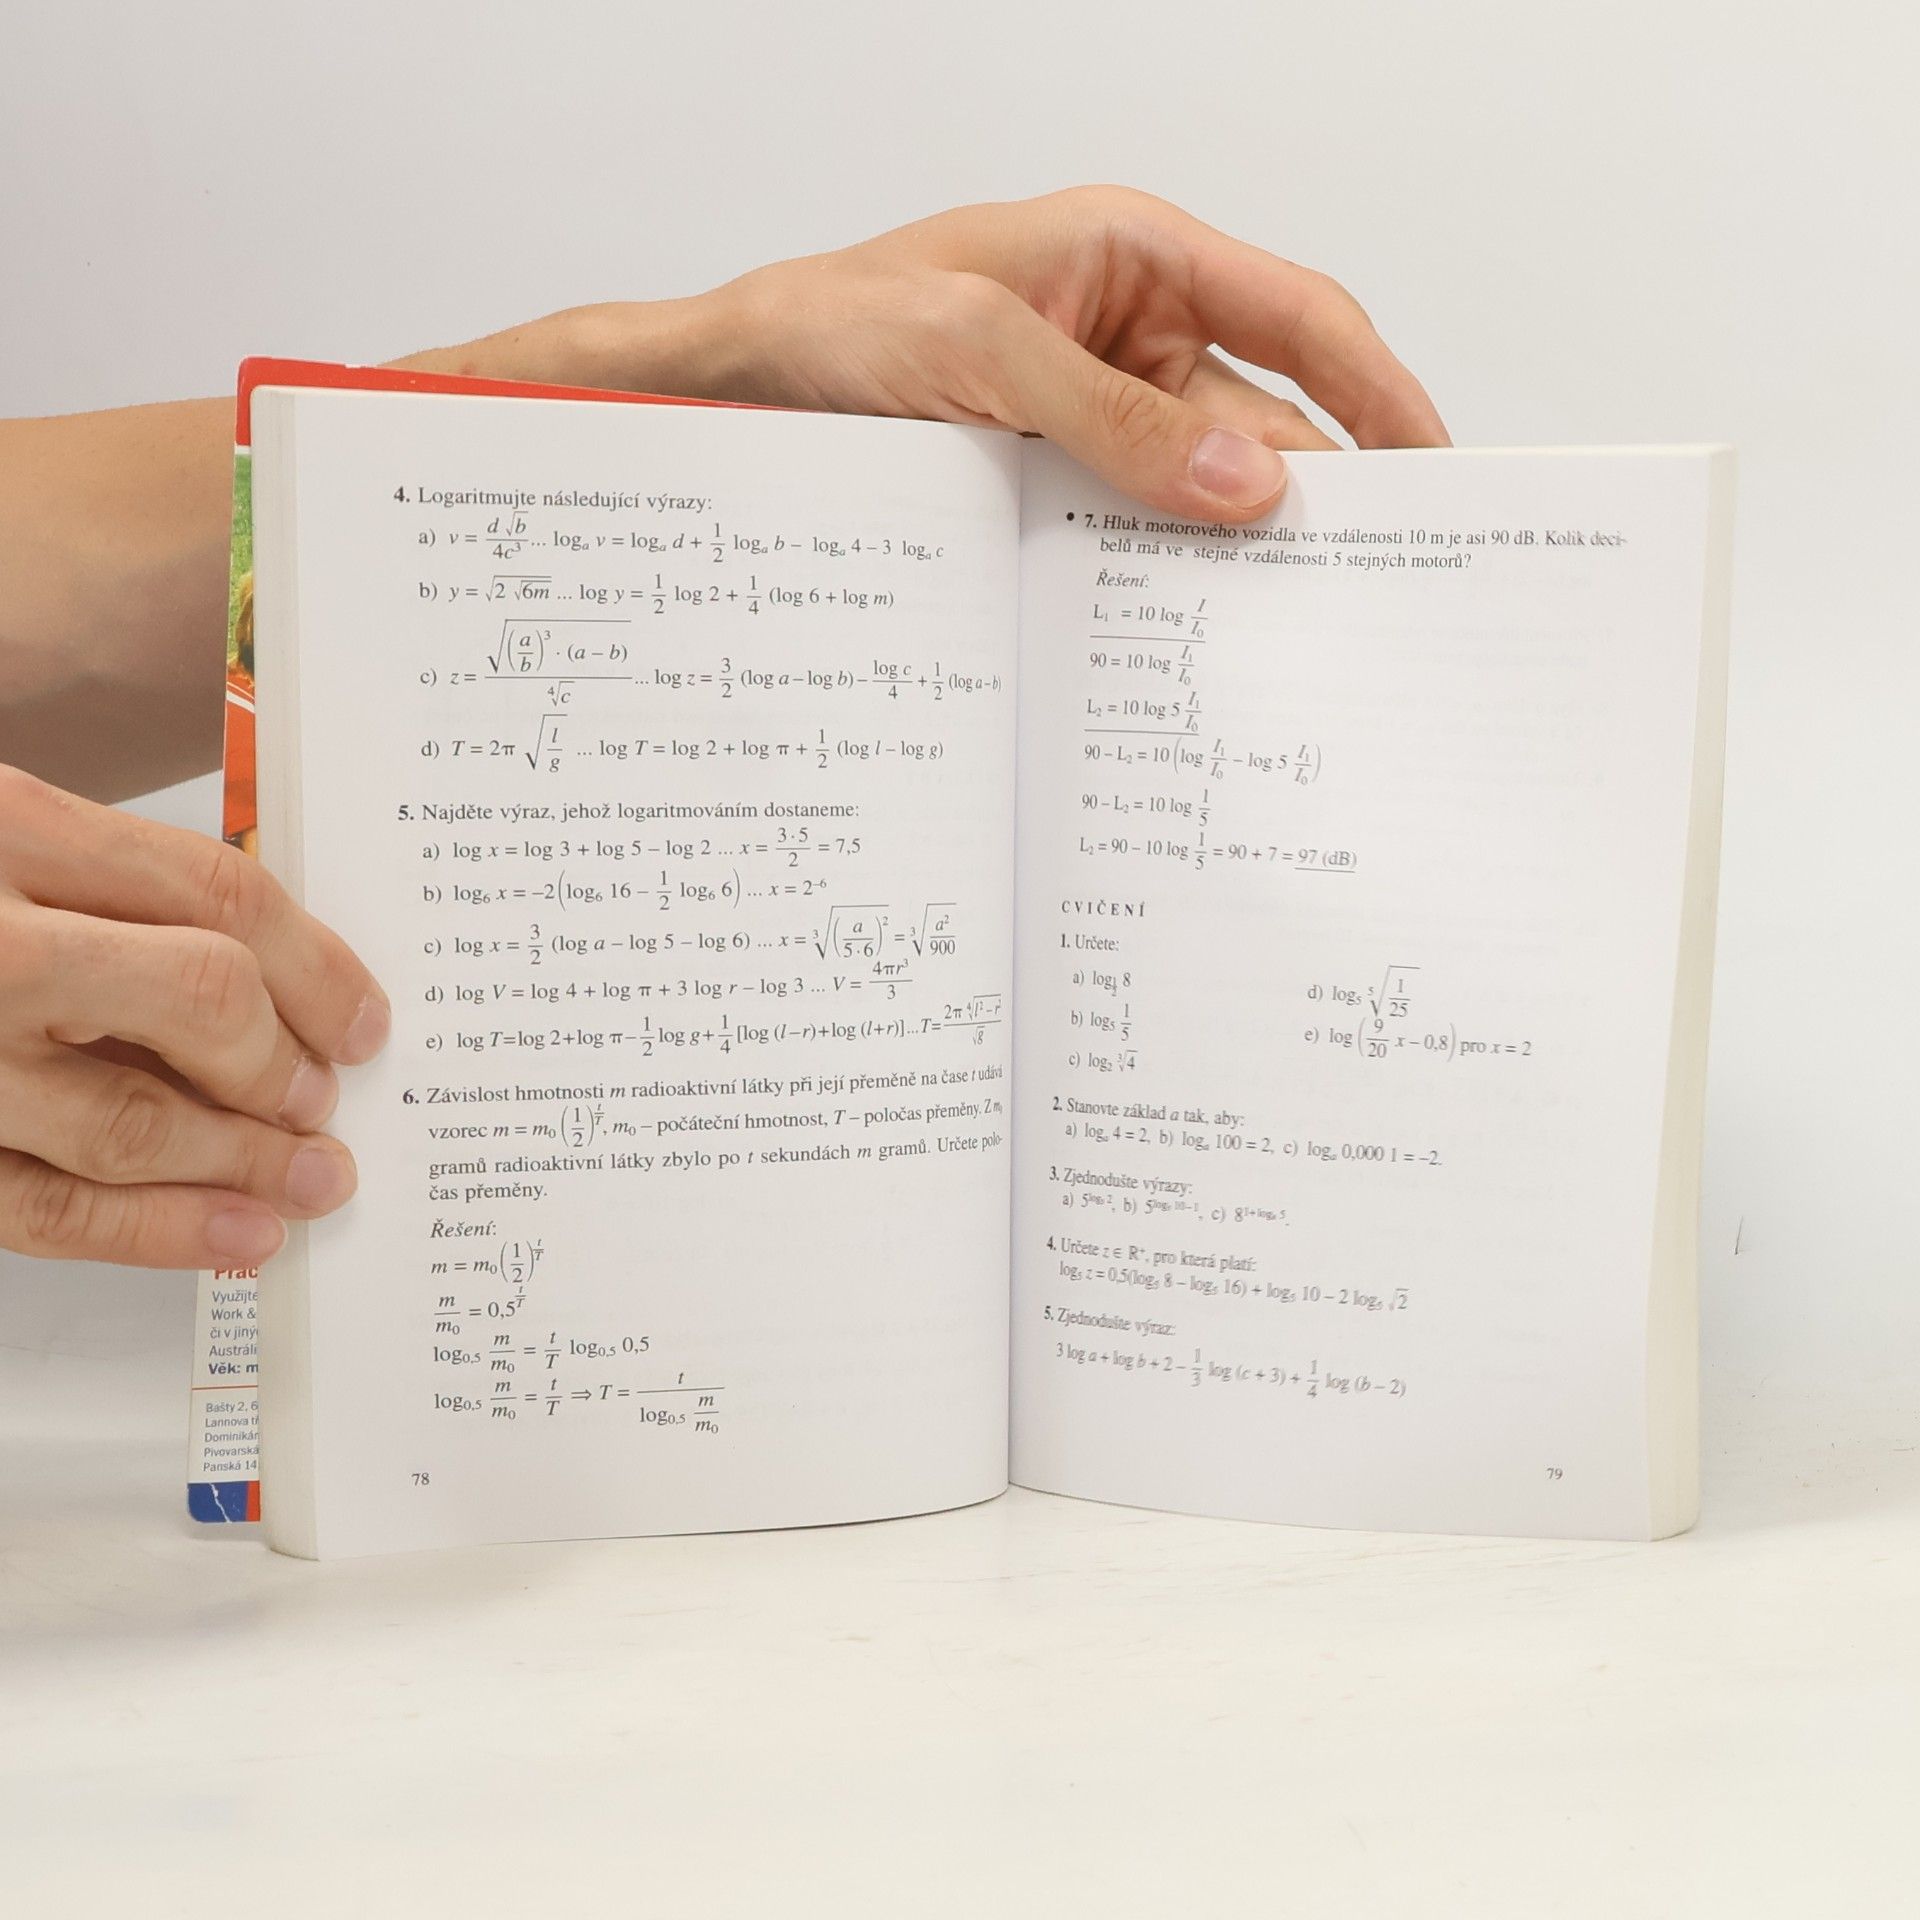 4. Logaritmujte následující výrazy:
a) v = d √b / 4c³ ... logₐ v = logₐ d + 1/2 logₐ b – logₐ 4 – 3 logₐ c
b) y = √(2 √(6m)) ... log y = 1/2 log 2 + 1/4 (log 6 + log m)
c) z = √((a/b)³ · (a – b)) / ⁴√c ... log z = 3/2 (log a – log b) – log c / 4 + 1/2 (log a – b)
d) T = 2π √(l/g) ... log T = log 2 + log π + 1/2 (log l – log g)
5. Najděte výraz, jehož logaritmováním dostaneme:
a) log x = log 3 + log 5 – log 2 ... x = 3 · 5 / 2 = 7,5
b) log₆ x = –2(log₆ 16 – 1/2 log₆ 6) ... x = 2⁻⁶
c) log x = 3/2 (log a – log 5 – log 6) ... x = ³√((a / 5 · 6)²) = ³√(a² / 900)
d) log V = log 4 + log π + 3 log r – log 3 ... V = 4πr³ / 3
e) log T = log 2 + log π – 1/2 log g + 1/4 [log (l – r) + log (l + r)] ... T = 2π ⁴√(l² – r²) / √g
6. Závislost hmotnosti m radioaktivní látky při její přeměně na čase t udává
vzorec m = m₀ (1/2)^(t/T), m₀ – počáteční hmotnost, T – poločas přeměny. Z m₀
gramů radioaktivní látky zbylo po t sekundách m gramů. Určete polo-
čas přeměny.
Řešení:
m = m₀ (1/2)^(t/T)
m/m₀ = 0,5^(t/T)
log₀,₅ m/m₀ = t/T log₀,₅ 0,5
log₀,₅ m/m₀ = t/T ⇒ T = t / (log₀,₅ m/m₀)
78
• 7. Hluk motorového vozidla ve vzdálenosti 10 m je asi 90 dB. Kolik deci-
belů má ve stejné vzdálenosti 5 stejných motorů?
Řešení:
L₁ = 10 log I/I₀
90 = 10 log I₁/I₀
L₂ = 10 log 5 I₁/I₀
90 – L₂ = 10 (log I₁/I₀ – log 5 I₁/I₀)
90 – L₂ = 10 log 1/5
L₂ = 90 – 10 log 1/5 = 90 + 7 = 97 (dB)
CVIČENÍ
1. Určete:
a) log_(1/2) 8
b) log₅ 1/5
c) log₂ ³√4
d) log₅ ⁵√(1/25)
e) log (9/20 x – 0,8) pro x = 2
2. Stanovte základ a tak, aby:
a) logₐ 4 = 2, b) logₐ 100 = 2, c) logₐ 0,000 1 = –2.
3. Zjednodušte výrazy:
a) 5^(log₅ 2), b) 5^(log₅ 10 – 1), c) 8^(1 + log₈ 5).
4. Určete z ∈ R⁺, pro která platí:
log₅ z = 0,5(log₅ 8 – log₅ 16) + log₅ 10 – 2 log₅ √2
5. Zjednodušte výraz:
3 log a + log b + 2 – 1/3 log (c + 3) + 1/4 log (b – 2)
79
Využijte
Work &
či v jiný
Austráli
Věk: m
Bašty 2, 6
Lannova tř
Dominikán
Pivovarská
Panská 14